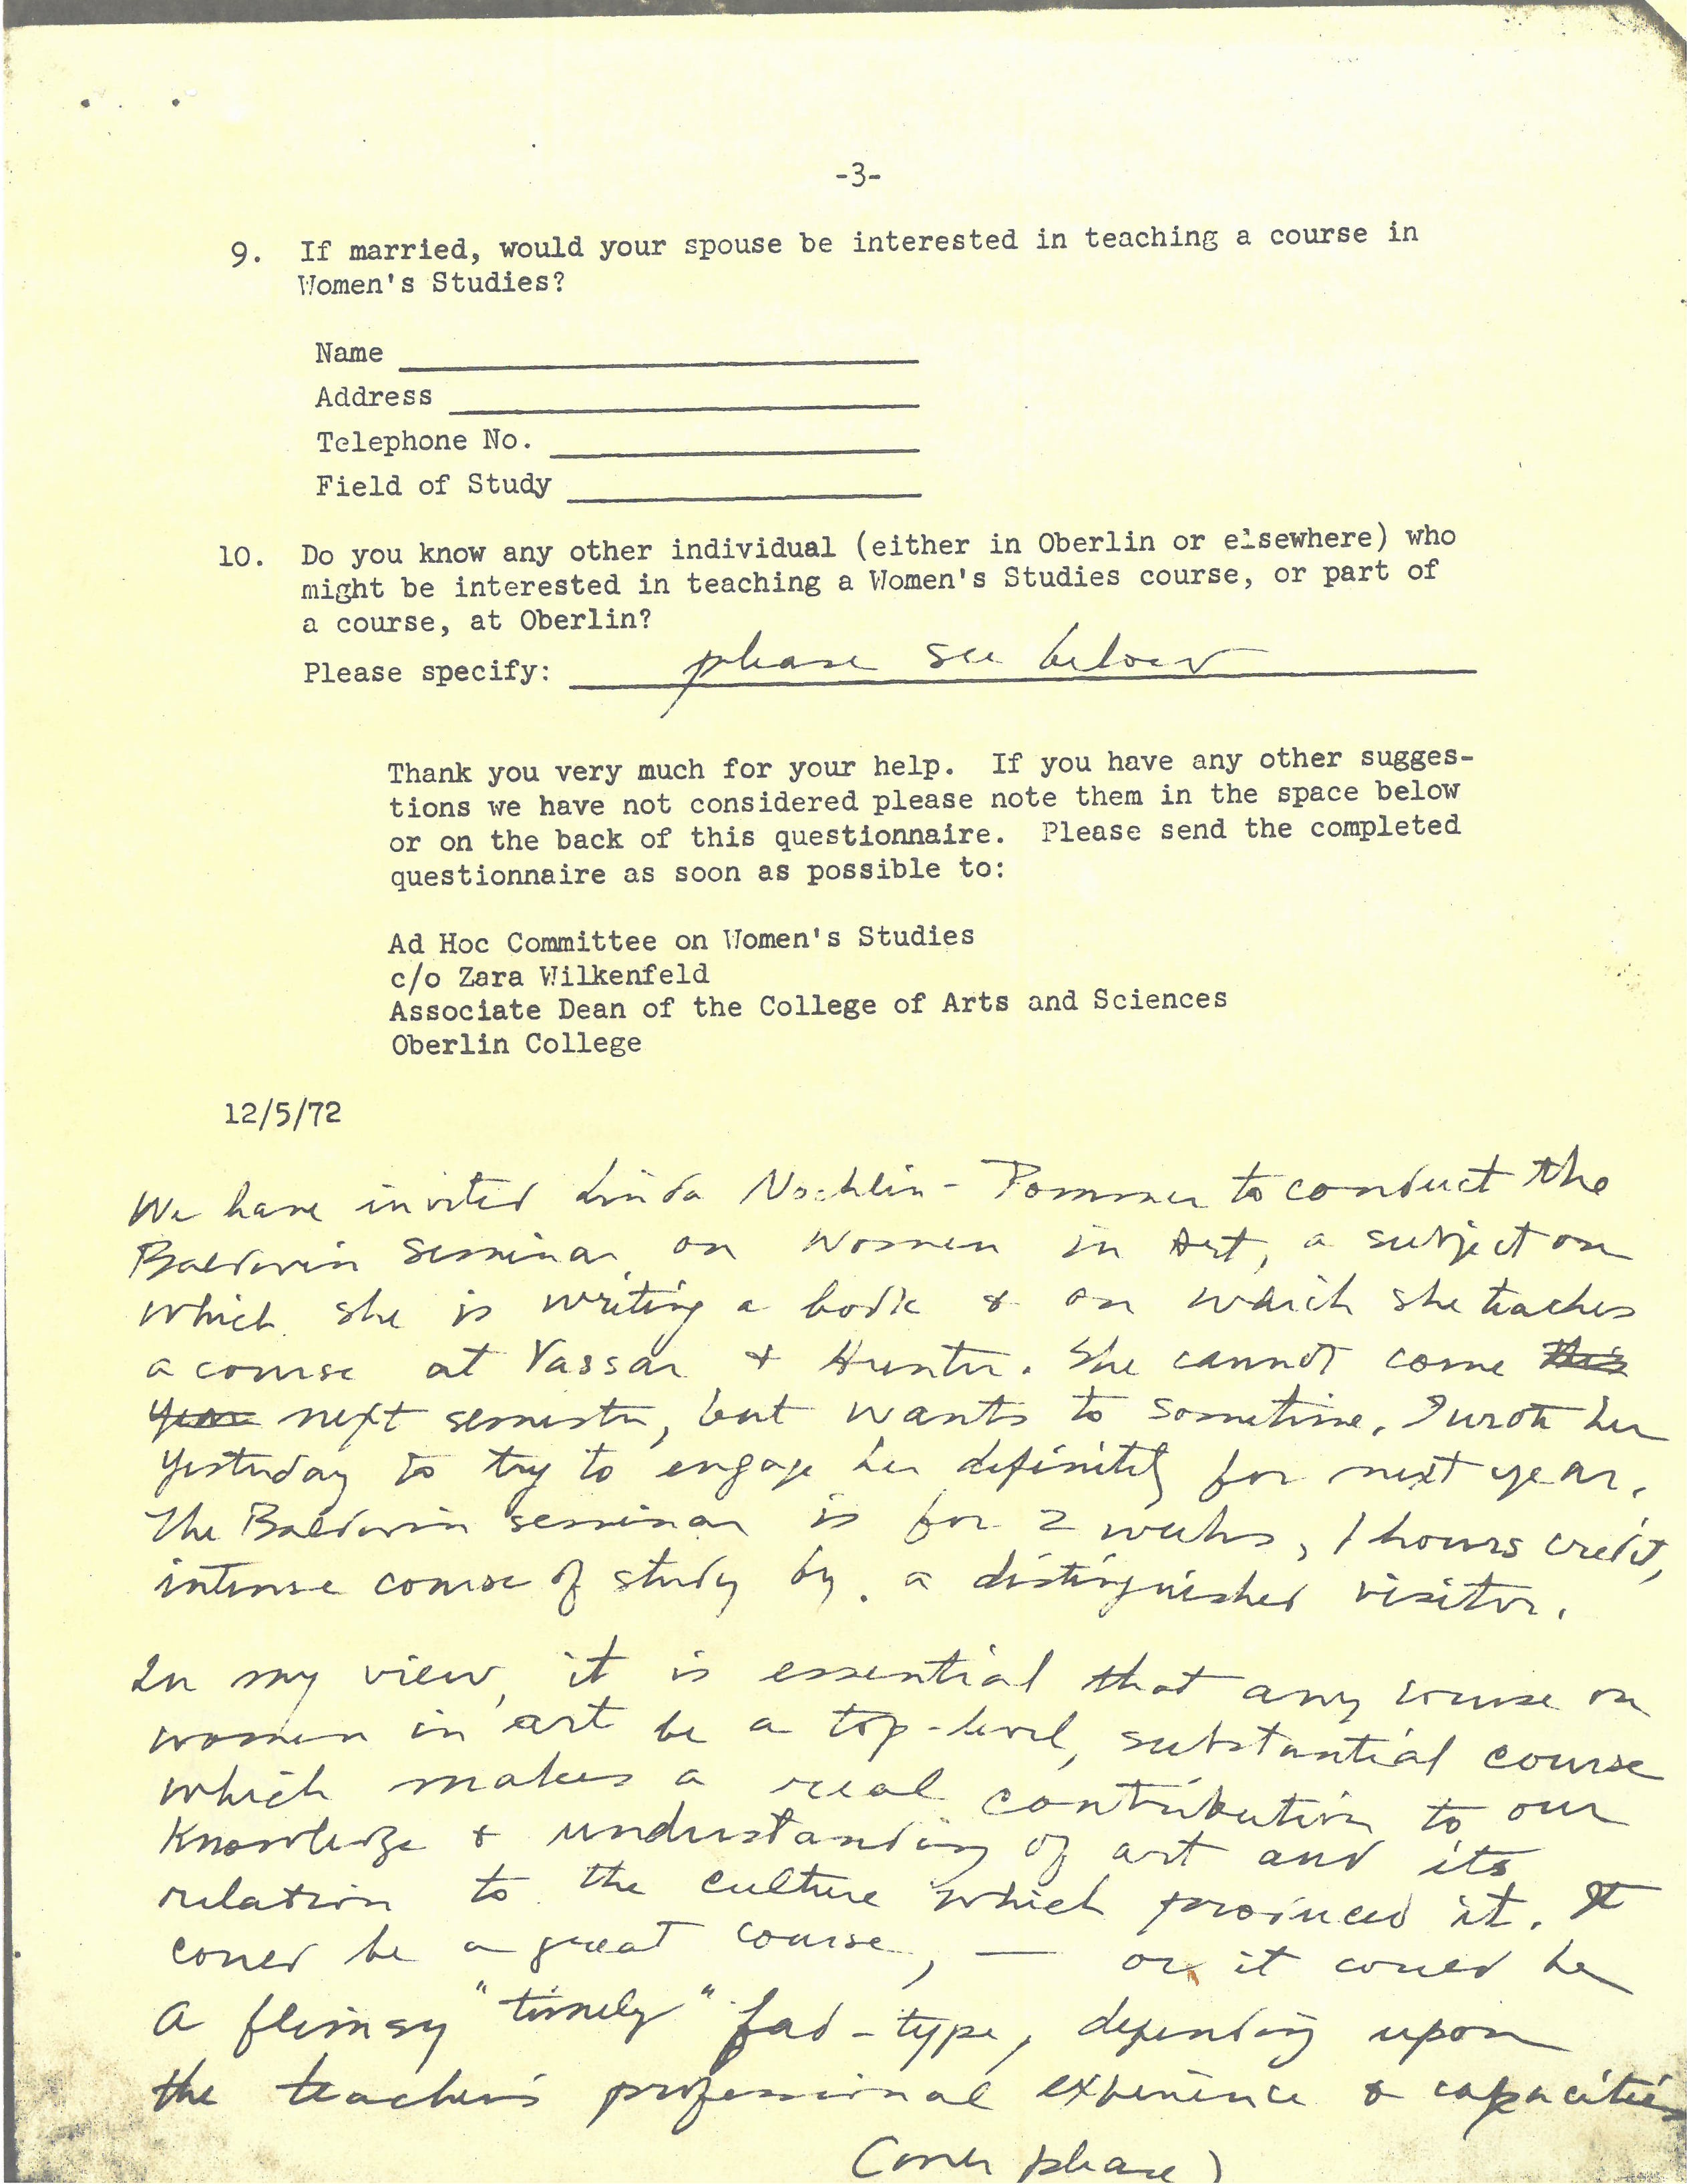 -3-
9. If married, would your spouse be interested in teaching a course in
Women's Studies?
Name
Address
Telephone No.
Field of Study
10. Do you know any other individual (either in Oberlin or elsewhere) who
might be interested in teaching a Women's Studies course, or part of
a course, at Oberlin?
Please specify: please see below
Thank you very much for your help. If you have any other sugges-
tions we have not considered please note them in the space below
or on the back of this questionnaire. Please send the completed
questionnaire as soon as possible to:
Ad Hoc Committee on Women's Studies
c/o Zara Wilkenfeld
Associate Dean of the College of Arts and Sciences
Oberlin College
12/5/72
We have invited Linda Nochlin-Pommer to conduct the
Baldwin seminar on Women in Art, a subject on
which she is writing a book & on which she teaches
a course at Vassar + Hunter. She cannot come this
year next semester, but wants to sometime. I wrote her
yesterday to try to engage her definitely for next year.
The Baldwin seminar is for 2 weeks, 1 hours credit,
intense course of study by a distinguished visitor.
In my view, it is essential that any course on
women in art be a top-level, substantial course
which makes a real contribution to our
knowledge & understanding of art and its
relation to the culture which produced it. It
could be a great course, — or it could be
a flimsy "timely" fad-type, depending upon
the teacher's professional experience & capacities
(over please)